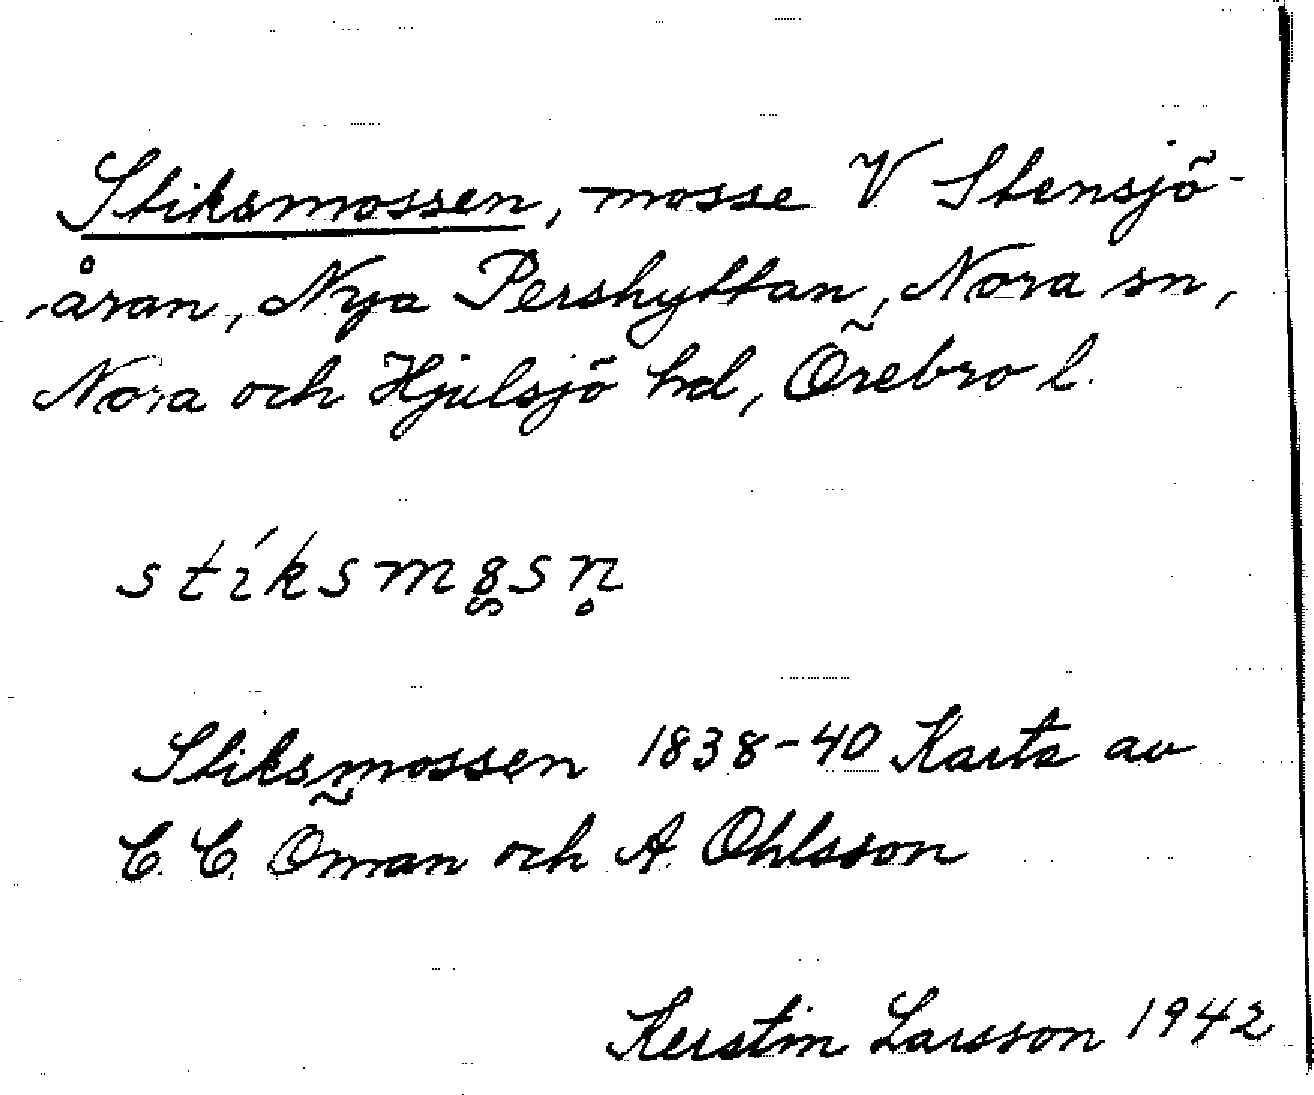 Stiksmossen, mosse V Stensjö-
åran, Nya Pershyttan, Nora sn,
Nora och Hjulsjö hd, Örebro l.
stíksmo̰sn̥
Stiksmossen 1838-40 Karta av
C. C. Öman och A. Ohlsson
Kerstin Larsson 1942